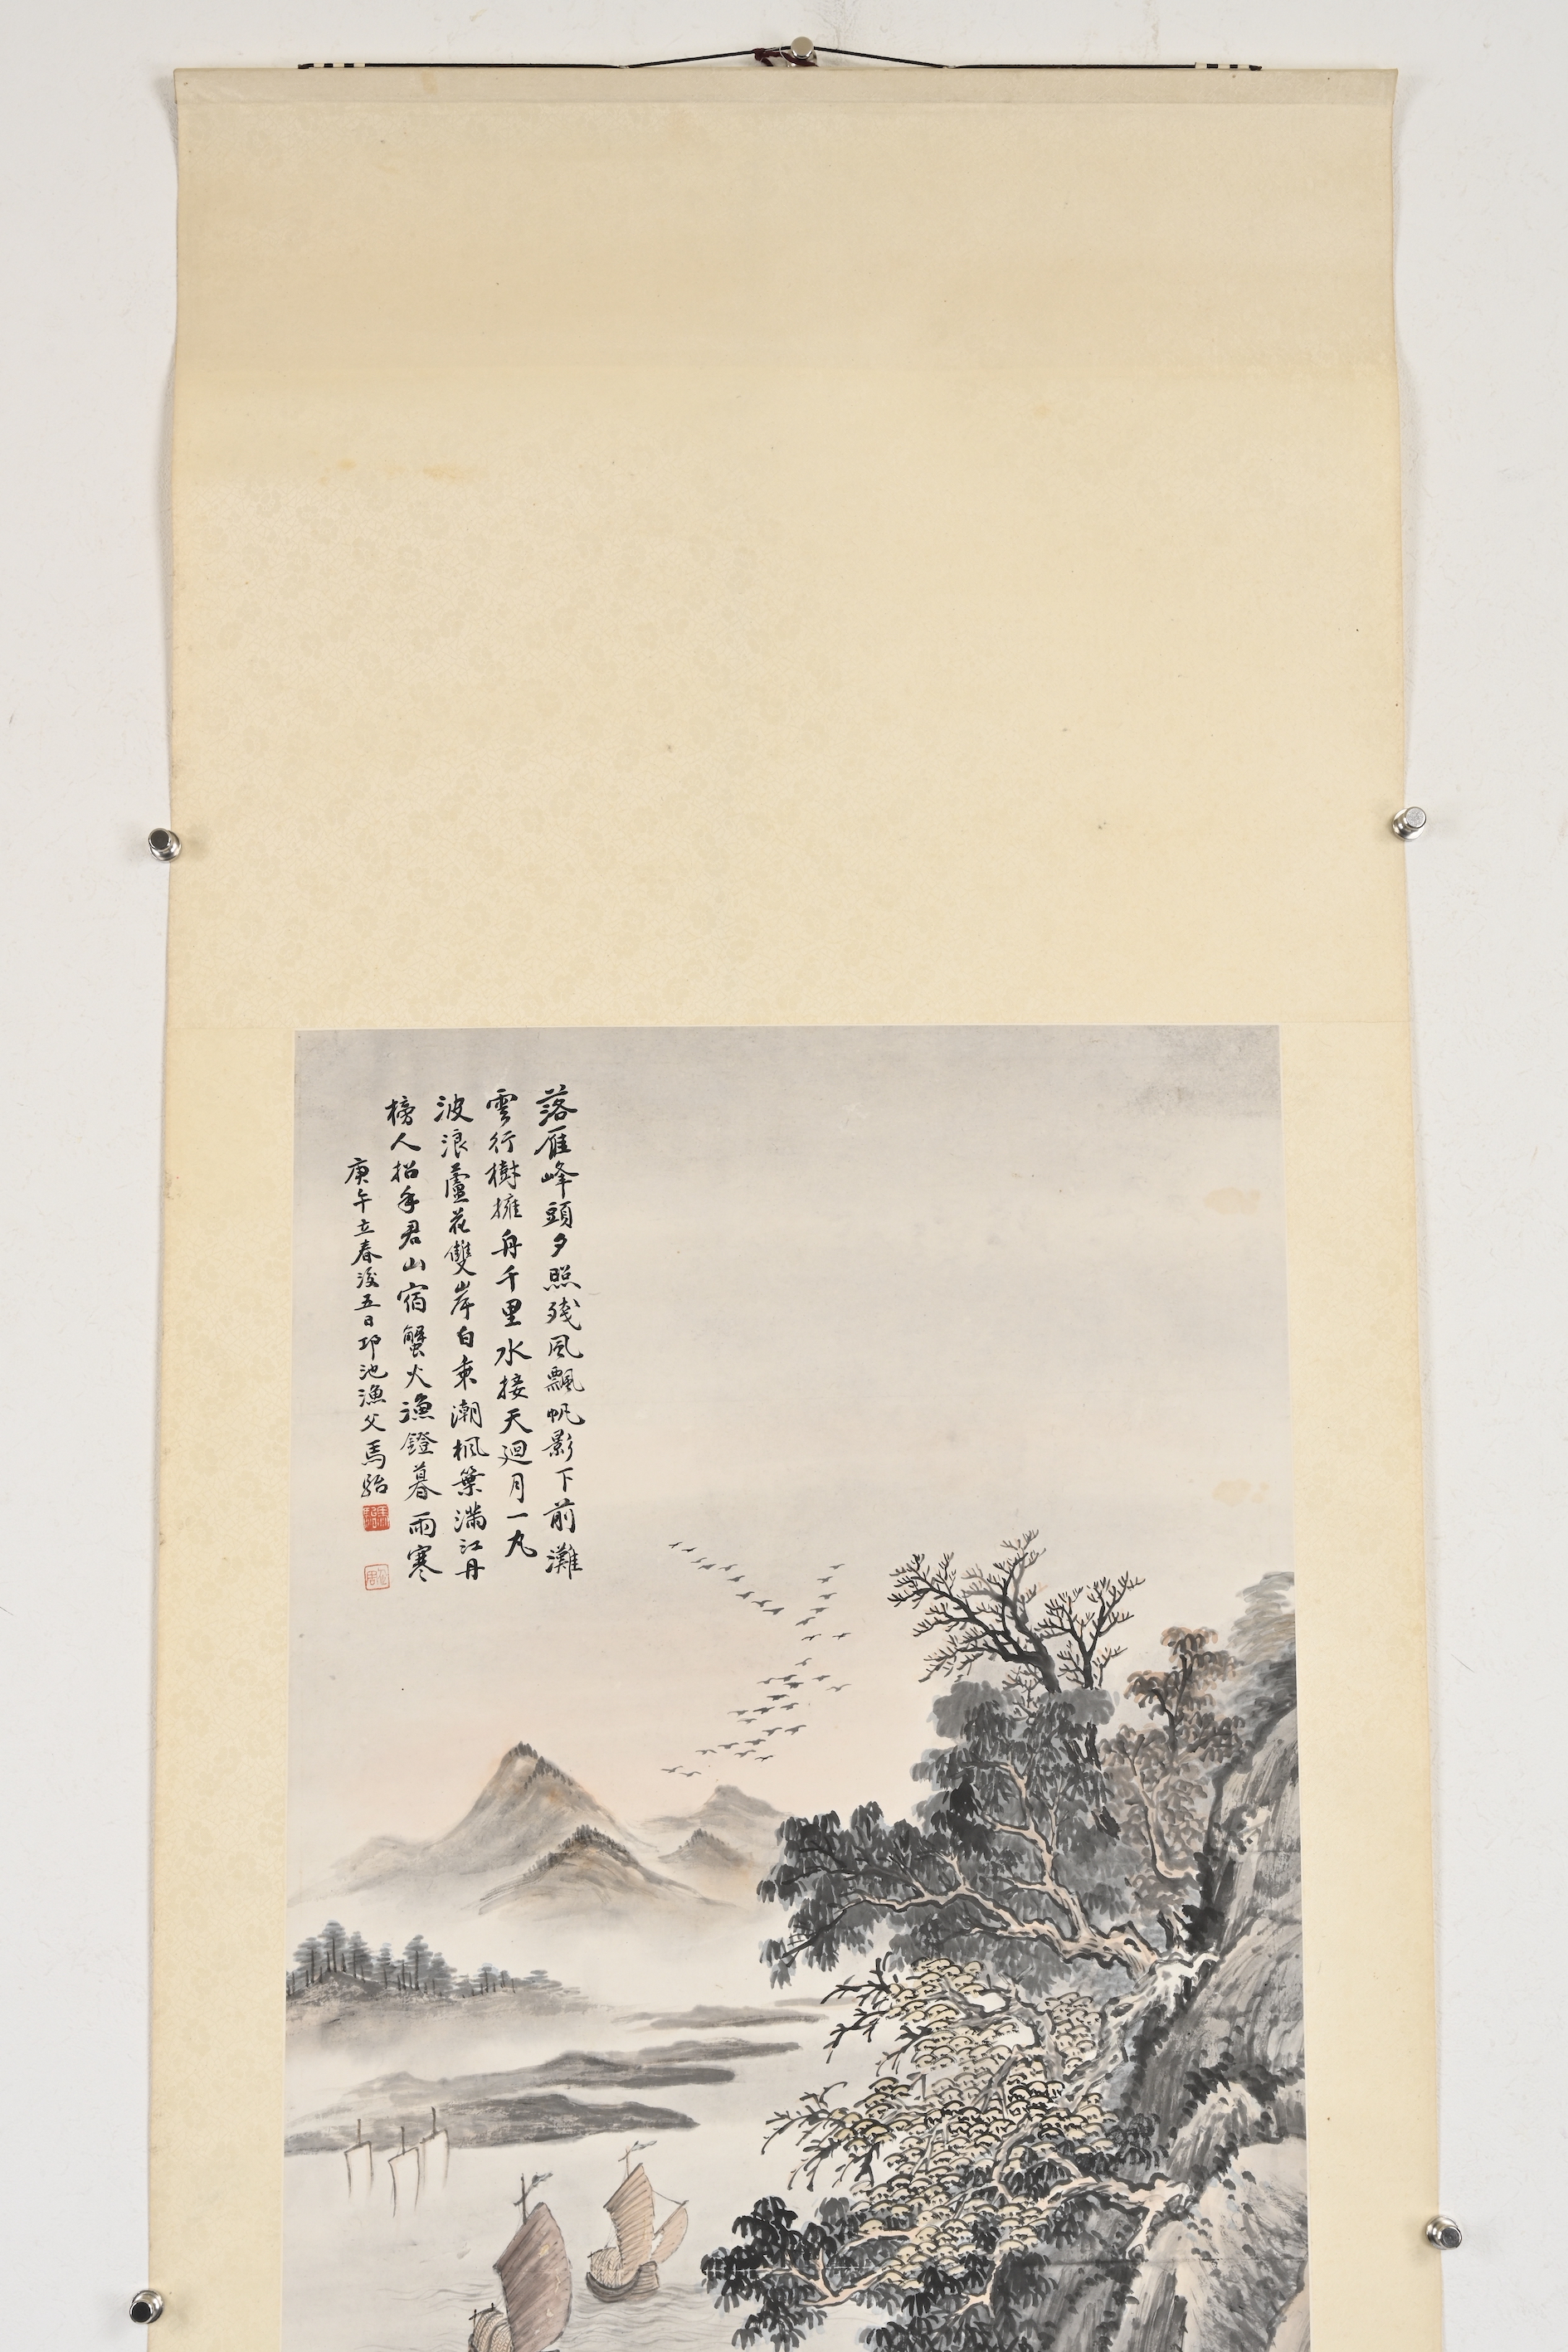 落雁峰頭夕照殘風飄帆影下前灘
雲行樹擁舟千里水接天迴月一丸
波浪蘆花雙岸白秉潮楓葉滿江丹
榜人招手君山宿蟹火漁鐙暮雨寒
庚午立春後五日邛池漁父馬駘
馬駘